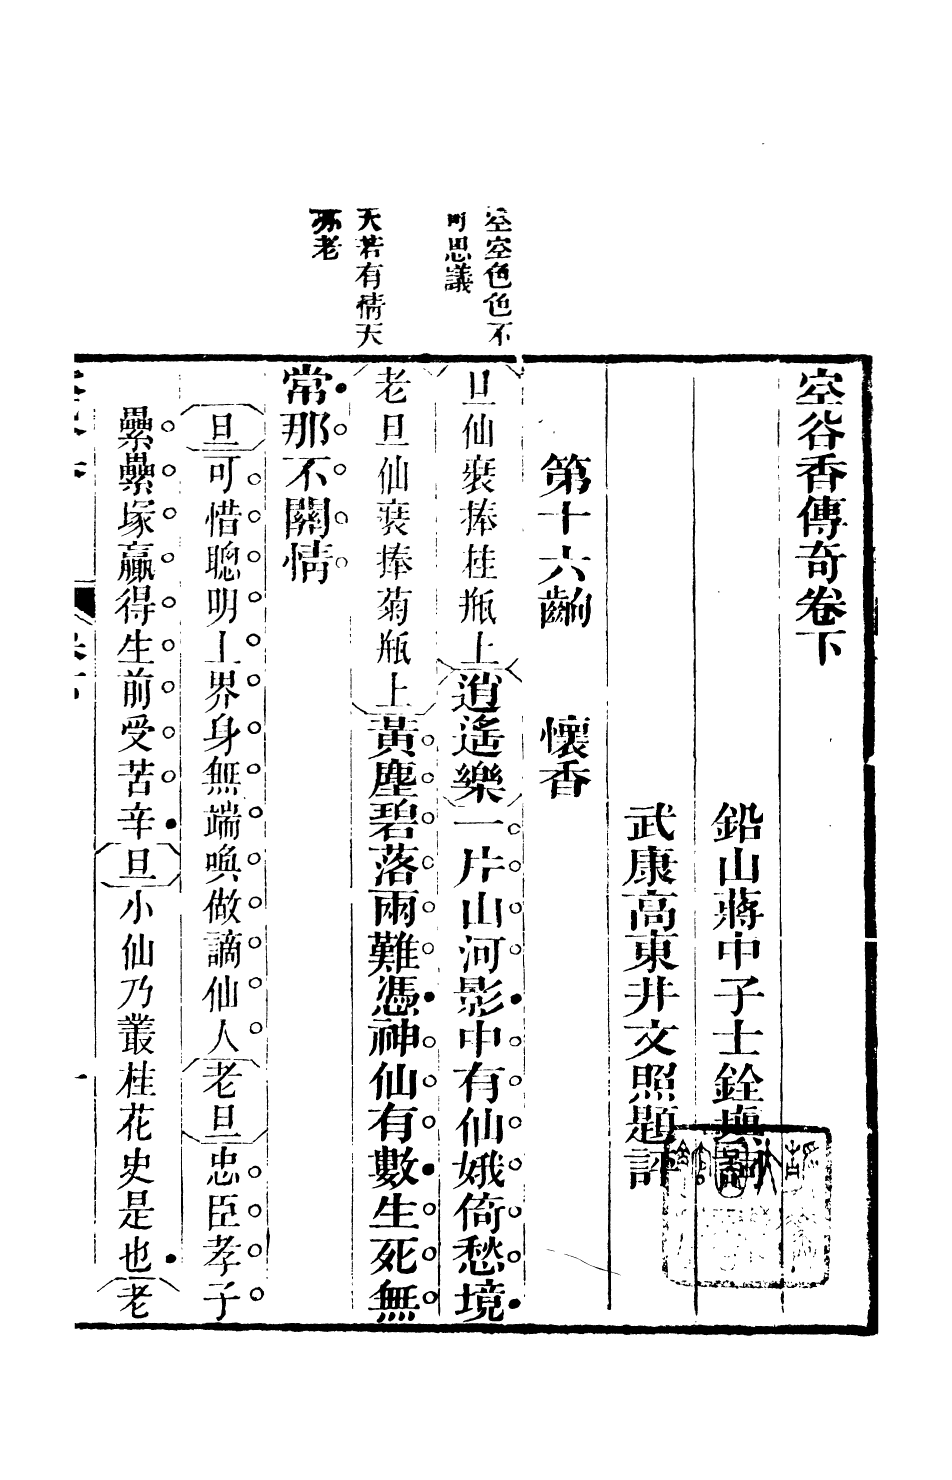 空谷香傳奇卷下
鉛山蔣中子士銓塡詞
武康高東井文照題評
第十六齣　懷香
旦仙裝捧桂瓶上逍遙樂一片山河影中有仙娥倚愁境
老旦仙裝捧菊瓶上黃塵碧落兩難憑神仙有數生死無
常那不關情
旦可惜聰明上界身無端喚做謫仙人老旦忠臣孝子
纍纍塚贏得生前受苦辛旦小仙乃叢桂花史是也老
空空色色不
可思議
天若有情天
亦老